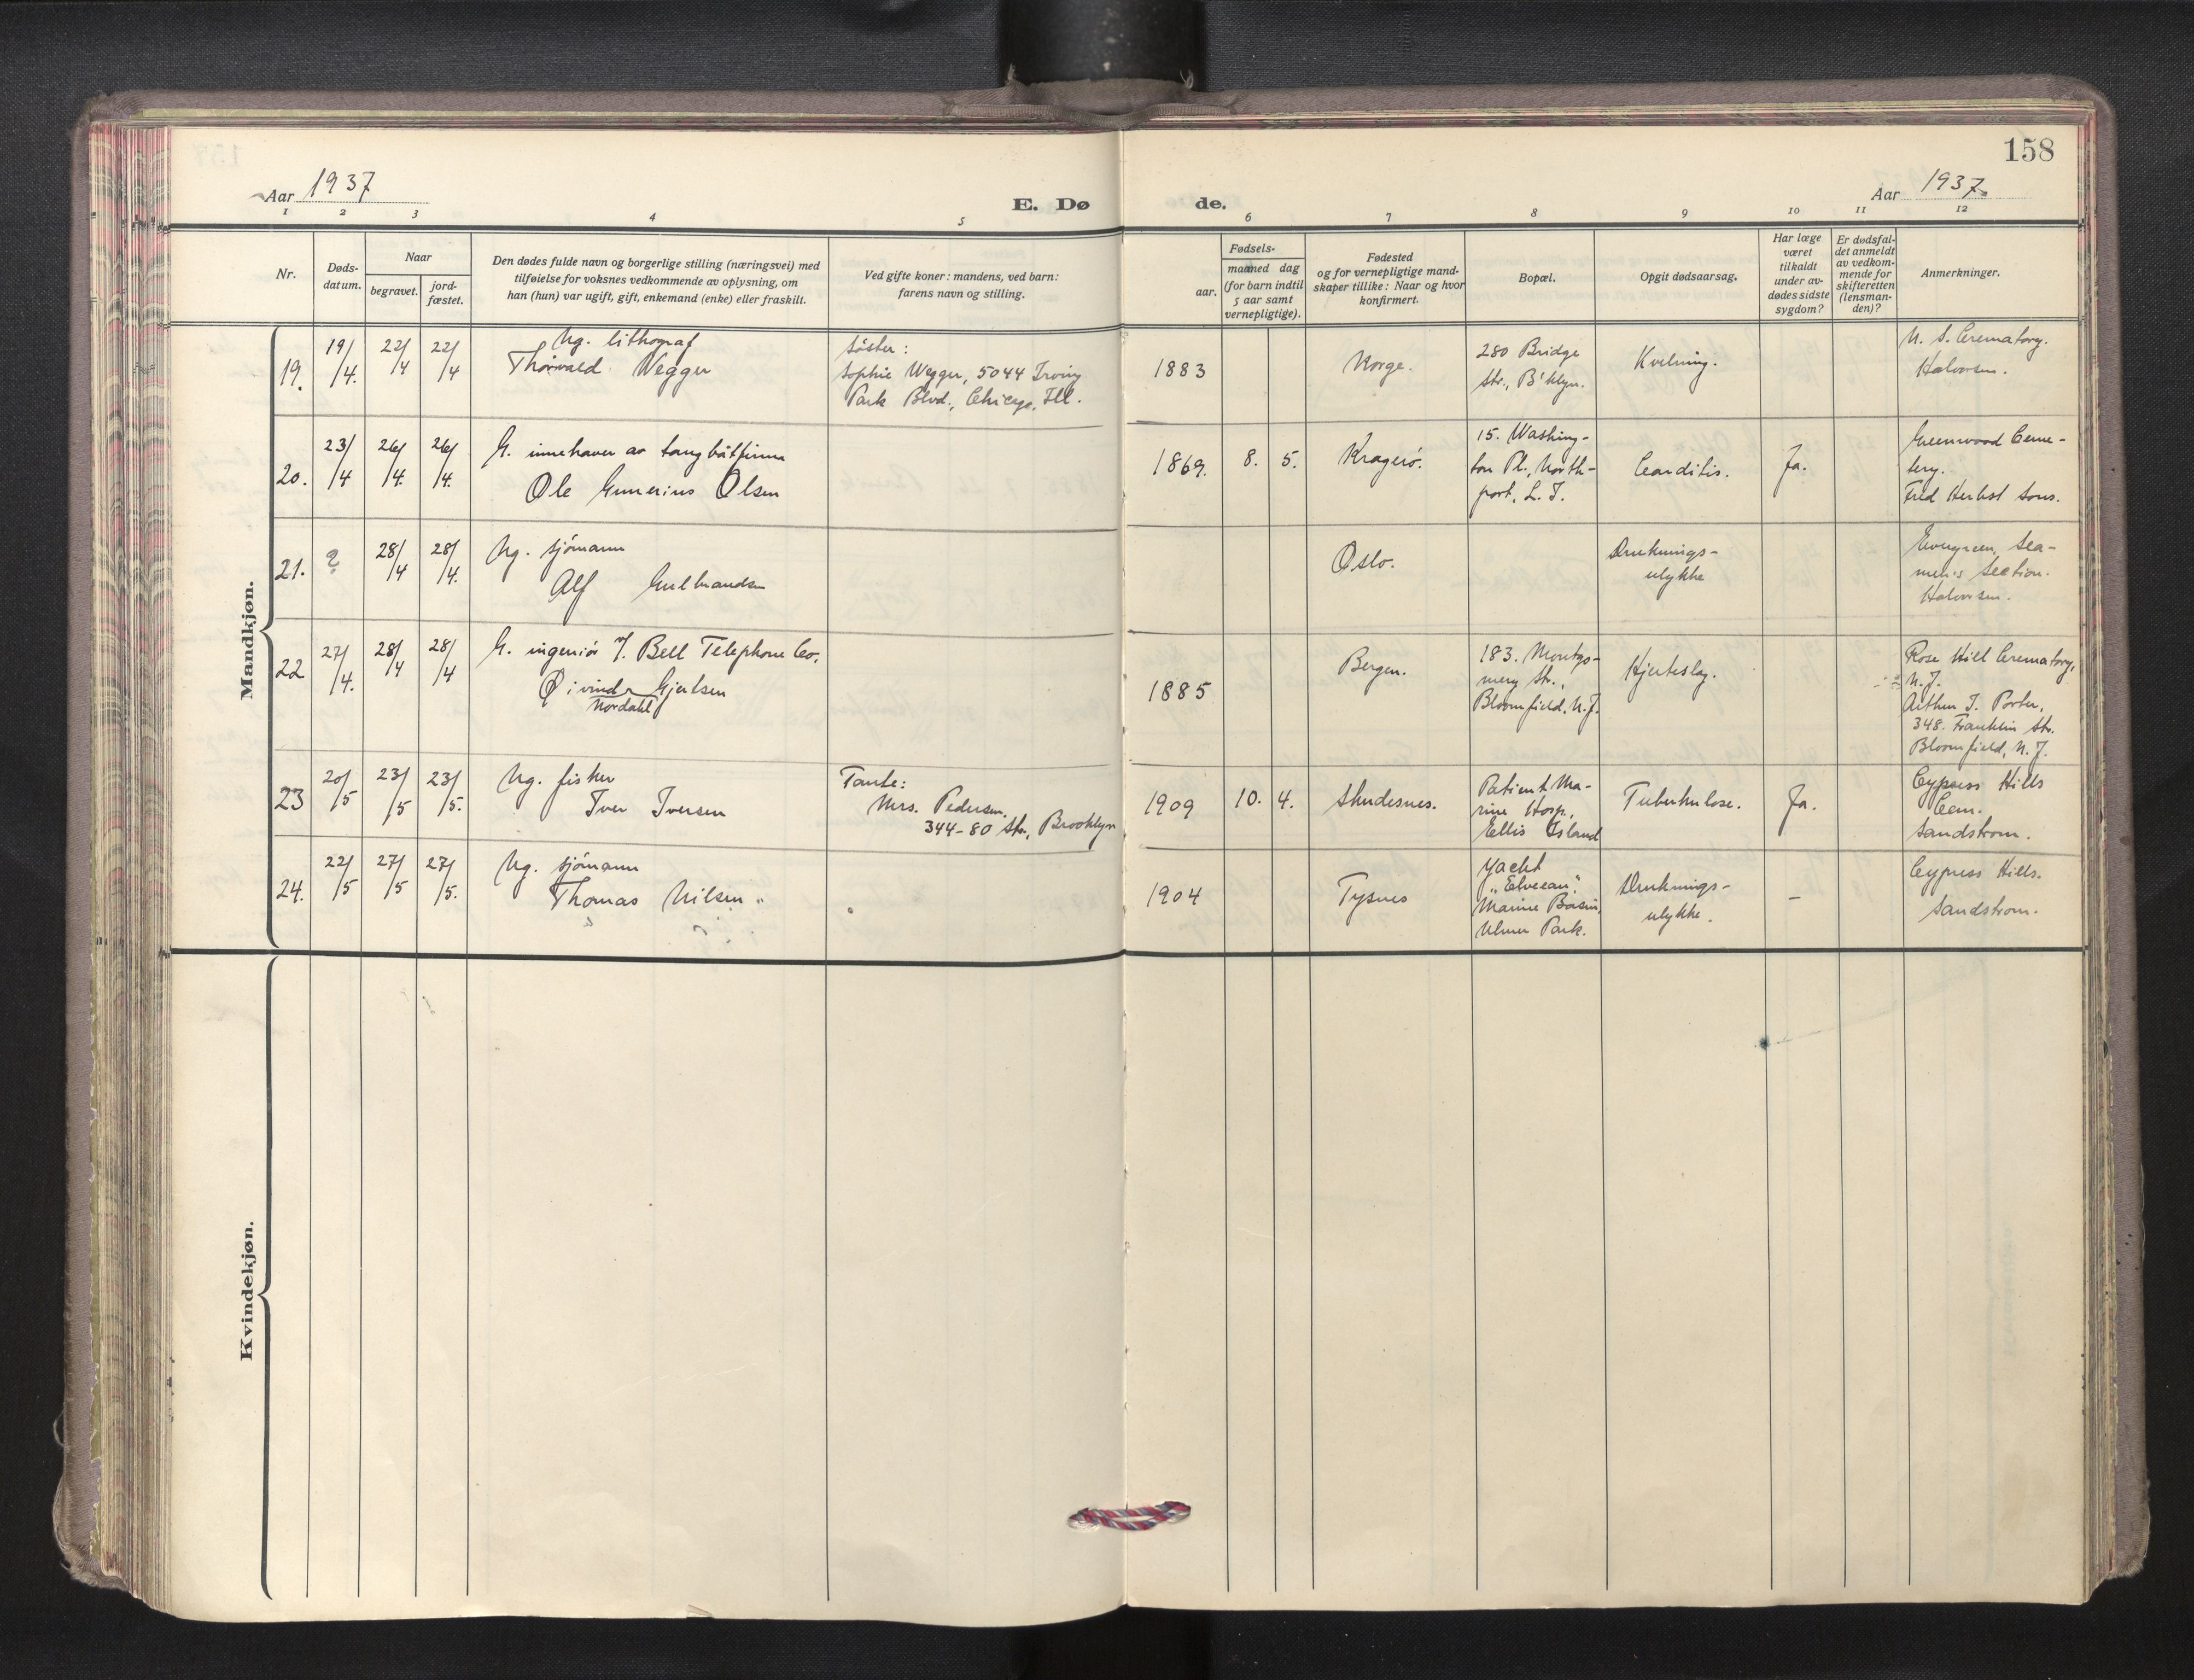 158
Aar 1937
E. Dø
de.
Aar 1937.
1 2 3 4 5 6 7 8 9 10 11 12
Nr.
Døds-
datum.
Naar
begravet.
jord-
fæstet.
Den dødes fulde navn og borgerlige stilling (næringsvei) med
tilføielse for voksnes vedkommende av oplysning, om
han (hun) var ugift, gift, enkemand (enke) eller fraskilt.
Ved gifte koner: mandens, ved barn:
farens navn og stilling.
Fødsels-
aar.
maaned dag
(for barn indtil
5 aar samt
vernepligtige).
Fødested
og for vernepligtige mand-
skaper tillike: Naar og hvor
konfirmert.
Bopæl.
Opgit dødsaarsag.
Har læge
været
tilkaldt
under av-
dødes sidste
sygdom?
Er dødsfal-
det anmeldt
av vedkom-
mende for
skifteretten
(lensman-
den)?
Anmerkninger.
Mandkjøn.
19. 19/4. 22/4 22/4
Ug. lithograf
Thorvald Wegger
Søster:
Sophie Wegger, 5044 Irving
Park Blvd., Chicago, Ill.
1883
Norge.
280 Bridge
Str., B'klyn.
Kvelning.
U. S. Crematory.
Halvorsen.
20. 23/4 26/4. 26/4.
G. innehaver av taugbåtfirma
Ole Gunerius Olsen
1869. 8. 5.
Kragerø.
15. Washing-
ton Pl., North-
port, L. I.
Carditis.
Ja.
Greenwood Ceme-
tery.
Fred Herbst Sons.
21. ? 28/4 28/4.
Ug. sjømann
Alf Gulbrandsen
Oslo.
Druknings-
ulykke
Evergreen, Sea-
men's Section.
Halvorsen.
22 27/4. 28/4 28/4
G. ingeniør v/ Bell Telephone Co.
Øivind Gjertsen
Nordahl
1885
Bergen.
183. Montgo-
mery Str.,
Bloomfield, N.J.
Hjerteslag.
Rose Hill Crematory,
N.J.
Arthur I. Porter,
348. Franklin Str.
Bloomfield, N. J.
23 20/5 23/5 23/5.
Ug. fisker
Iver Iversen
Tante:
Mrs. Pedersen,
344-80 Str., Brooklyn
1909 10. 4.
Skudesnes.
Patient Ma-
rine Hosp.,
Ellis Island
Tuberkulose.
Ja.
Cypress Hills
Cem.
Sandstrom.
24. 22/5 27/5 27/5.
Ug. sjømann
Thomas Nilsen
1904
Tysnes
Yacht
Marine Basin,
Ulmer Park.
Druknings-
ulykke.
–
Cypress Hills.
Sandstrom.
Kvindekjøn.